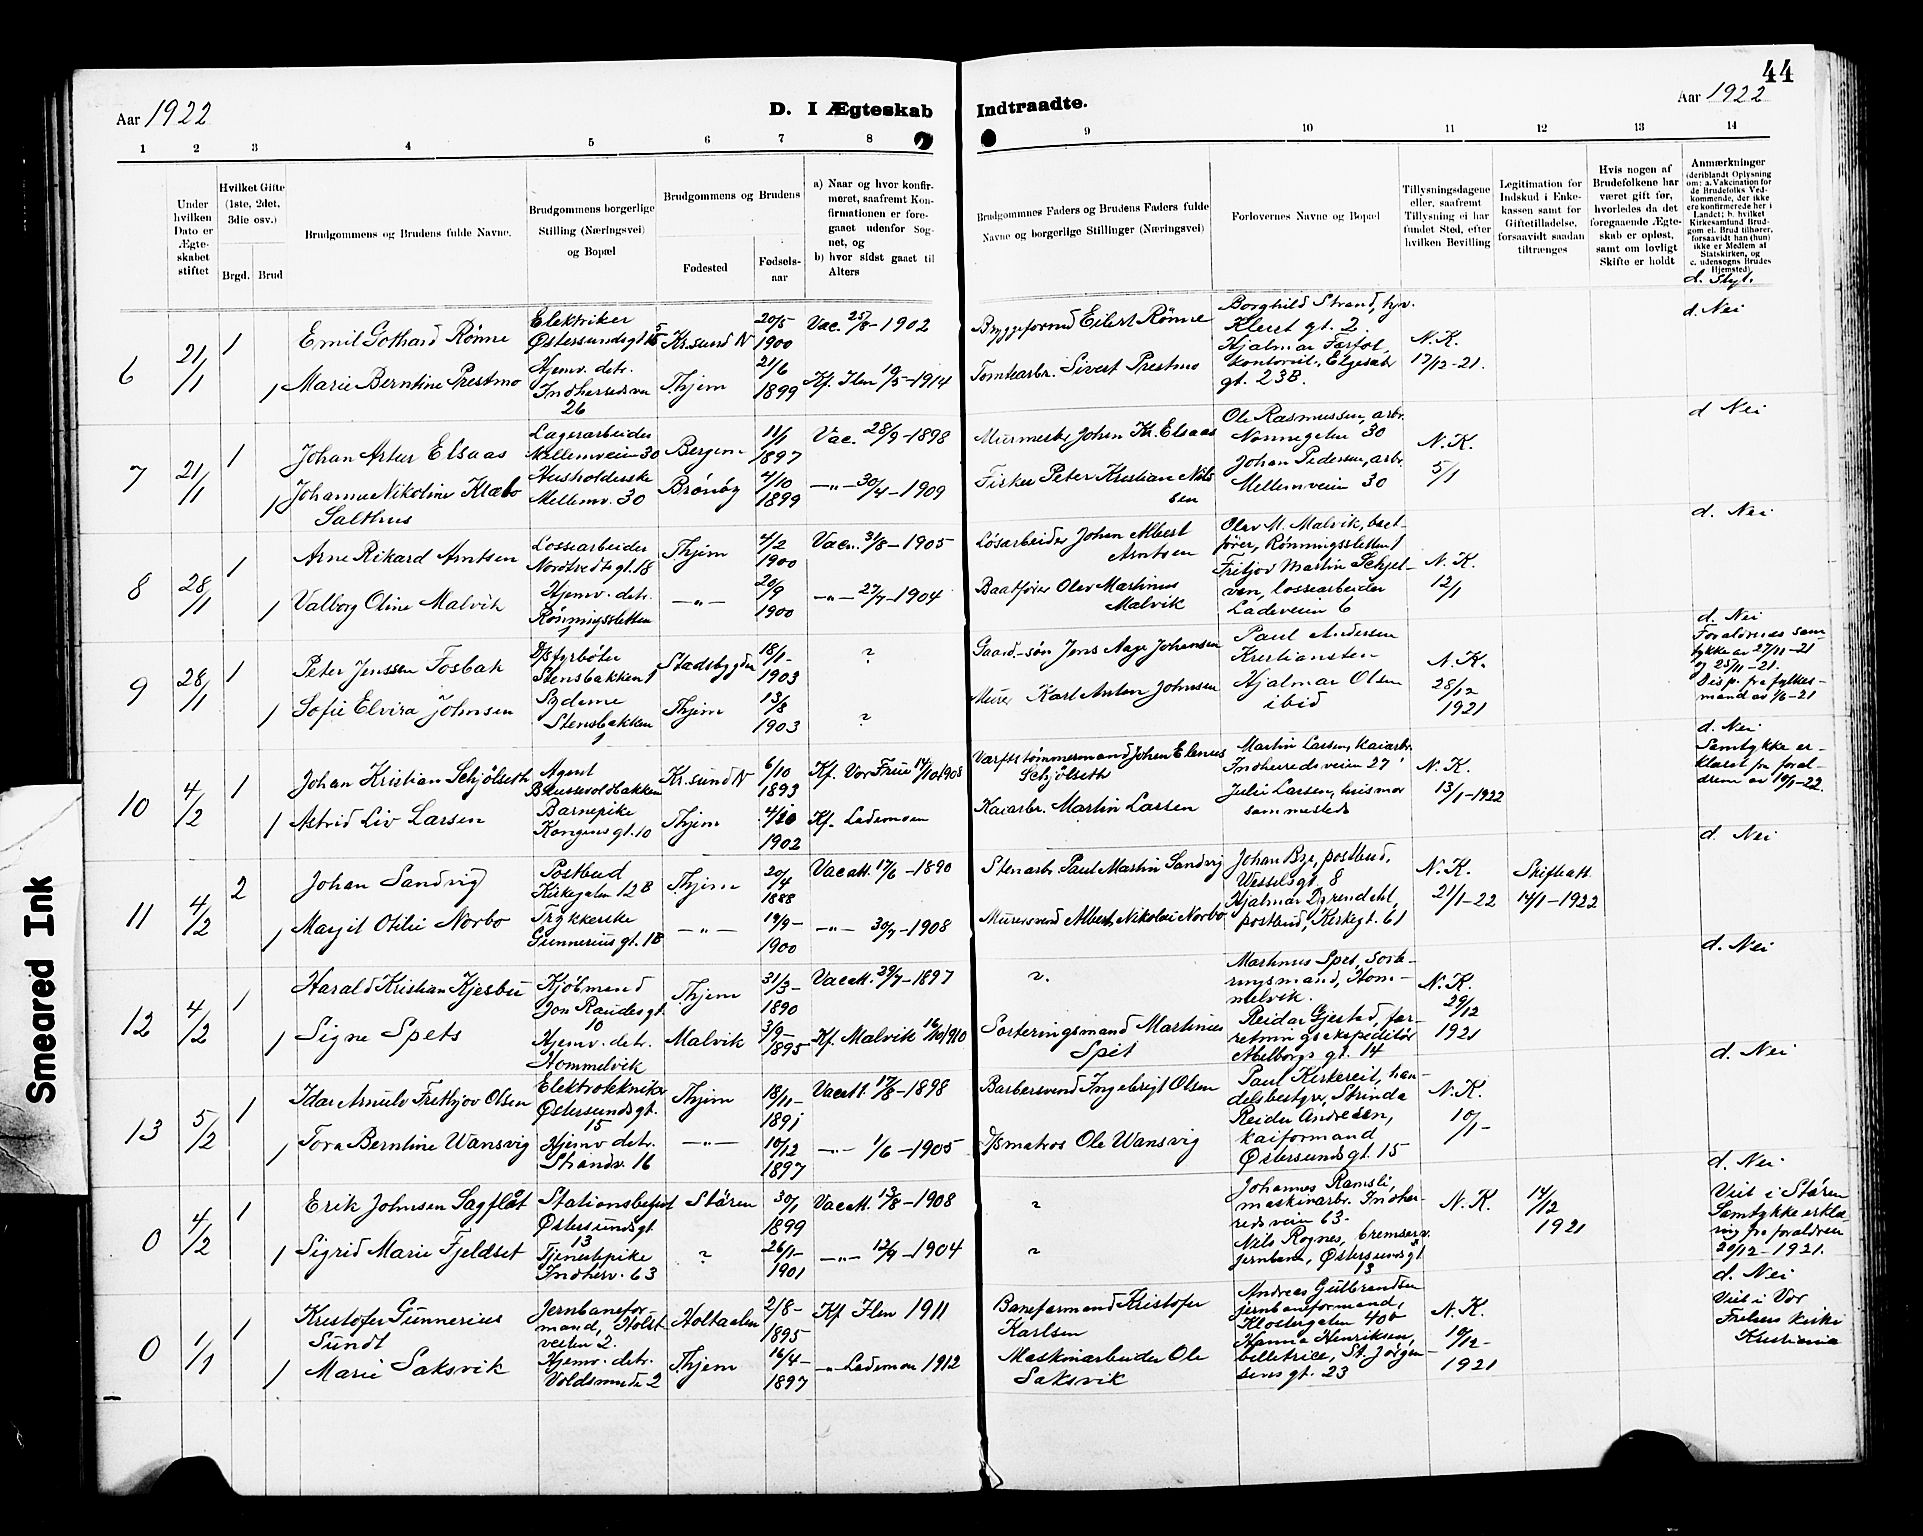 44
Aar 1922
D. I Ægteskab
Indtraadte.
Aar 1922
1 2 3 4 5 6 7 8 9 10 11 12 13 14
Under hvilken Dato er Ægteskabet stiftet
Hvilket Gifte (1ste, 2det, 3die osv.)
Brgd. Brud
Brudgommens og Brudens fulde Navne.
Brudgommens borgerlige Stilling (Næringsvei) og Bopæl
Brudgommens og Brudens
Fødested
Fødselsaar
a) Naar og hvor konfirmeret, saafremt Konfirmationen er foregaaet udenfor Sognet, og
b) hvor sidst gaaet til Alters
Brudgommnes Faders og Brudens Faders fulde Navne og borgerlige Stillinger (Næringsvei)
Forlovernes Navne og Bopæl
Tillysningsdagene eller, saafremt Tillysning ei har fundet Sted, efter hvilken Bevilling
Legitimation for Indskud i Enkekassen samt for Giftetilladelse, forsaavidt saadan tiltrænges
Hvis nogen af Brudefolkene har været gift før, hvorledes da det foregaaende Ægteskab er opløst, samt om lovligt Skifte er holdt
Anmærkninger (deriblandt Oplysning om: a. Vakcination for de Brudefolks Vedkommende, der ikke ere konfirmerede her i Landet; b. hvilket Kirkesamfund Brudgom el. Brud tilhører, forsaavidt han (hun) ikke er Medlem af Statskirken, og c. udensogns Brudes Hjemsted).
d. Slyt.
6 21/1 1 Emil Gothard Rønne
Elektriker
Østersundsgt 15
Kr.sund N
20/5 1900
Vac. 25/8-1902
Byggeformd Eilert Rønne
Borghild Strand, hpr.
Kleret gt. 2
N.K.
17/12-21.
d. Nei
1 Marie Berntine Prestmo
Hjemv. dtr.
Indherredsvn
26
Thjem
21/6 1899
Kf. Ilen 10/5-1914
Tomtearbr. Sivert Prestmo
Hjalmar Færfot,
kontorist, Elgesæter
gt. 23B.
7 21/1 1 Johan Artur Elsaas
Lagerarbeider
Mellemveien 30
Bergen
11/1 1897
Vac. 28/9-1898
Murmester Johan Kr. Elsaas
Ole Rasmussen, arbr.
Nonnegaten 30
N.K.
5/1
d Nei
1 Johanne Nikoline Klæbo
Salthus
Husholderske
Mellemv. 30
Brønøy
4/10 1899
-"- 30/4-1909
Fisker Peter Kristian Nils
sen
Johan Pedersen, arbr.
Mellemveien 30
8 28/1 1 Arne Rikard Arntsen
Lossearbeider
Nordtvedtsgt. 18
Thjem
4/2 1900
Vac. 31/8-1905
Løsarbeider Johan Albert
Arntsen
Olav M. Malvik, baat-
fører, Rønningssletten 1
N.K.
12/1
d. Nei
1 Valborg Oline Malvik
Hjemv. dtr.
Rønningssletten
-"-
20/9 1900
-"- 27/7-1904
Baatfører Olav Martinus
Malvik
Fritjov Martin Schjel-
ven, Lossearbeider
Ladeveien 6
9 28/1 1 Peter Jenssen Fosbak
D/s fyrbøter
Stensbakken 1
Stadsbygden
18/1- 1903
?
Gaard-søn Jens Aage Johansen
Paul Andersen
Kristiansten
N.K.
28/12
1921
d. Nei
Forældrenes sam-
tykke av 27/11-21
og 25/11-21.
Disp. fra fylkes-
mand av 1/6-21
1 Sofie Elvira Johnsen
Syderne
Stensbakken
1
Thjem
13/8 1903
?
Murer Karl Anton Johnsen
Hjalmar Olsen
ibid
10 4/2 1 Johan Kristian Schjölseth
Agent
Bakkevoldbakken
Kr.sund N
6/10 1893
Kf. Vor Frue 14/10 1908
Værftstømmermand Johan Elenus
Schjölseth
Martin Larsen, kaiarbr.
Indherredsveien 27
N.K.
13/1-1922
d. Nei
Samtykke er-
klæret fra foræl-
drene av 10/1-22.
1 Astrid Liv Larsen
Barnepike
Kongensgt. 10
Thjem
4/10 1902
Kf. Lademoen
Kaiarbr. Martin Larsen
Julie Larsen, husmor
sammesteds
11 4/2 2 Johan Sandvig
Postbud
Kirkegaten 12B
Thjem
20/4 1888
Vacatt. 17/6-1890
Stenarbr. Paul Martin Sandvig
Johan Bye, postbud,
Wesselsgt. 8
N.K.
21/1-22
Skifteatt.
14/1-1922
d. Nei
1 Marjit Otilie Norbo
Trykkerske
Gunnerius gt. 1B
-"-
19/9- 1900
-"- 30/7-1908
Murersvend Albert Nikolai Norbo
Hjalmar Dyrendahl,
postbud, Kirkegt. 61
12 4/2 1 Harald Kristian Kjesbu
Kjøbmand
Jon Raudesgt.
10
Thjem
31/3- 1890
Vacatt. 29/7-1897
?
Martinus Spet, sorte-
ringsmand, Hom-
melvik.
N.K.
29/12
1921
d. Nei
1 Signe Spets
Hjemv. dtr.
Hommelvik
Malvik
3/9- 1895
Kf. Malvik 16/10 1910
Sorteringsmand Martinus
Spet
Reidar Gjestad, for-
retningsekspeditør
Abelborgs gt. 14
13 5/2 1 Idar Arnulv Frithjov Olsen
Elektrotekniker
Østersundsgt.
15
Thjem
18/11- 1891
Vacatt 17/8-1898
Barbersvend Ingebrigt Olsen
Paul Kirkereit, han-
delsbestyrer, Strinda
N.K.
10/1-
d. Nei
1 Tora Berntine Wansvig
Hjemv. dtr.
Strandv. 16
-"-
10/12 1897
-"- 1/6-1905
D/smatros Ole Wansvig
Reidar Andresen,
kaiformand
Østersundsgt. 15
0 4/2 1 Erik Johnsen Sagflåt
Stationsbetjent
Østersundsgt
13
Stören
30/1 1899
Vacatt 13/8-1908
?
Johannes Ramsli,
maskinarbr. Indher-
redsveien 63.
N.K.
14/12
1921
d. Nei
Viet i Stören
Samtykke erklæ-
ring fra forældrene
20/12-1921.
1 Sigrid Marie Fjeldset
Tjenestepike
Indherv. 63
?
26/1- 1901
-"- 12/9-1904
?
Nils Rognes, bremser v.
jernbane, Østersundsgt
13
0 1/1 1 Kristofer Gunnerius
Sundt
Jernbanefor-
mand, Holst-
veiten 2.
Holtaalen
2/8- 1895
Kf. Ilen 1911
Baneformand Kristofer
Karlsen
Andreas Gulbrandsen
jernbanformand,
Klostergaten 40b
N.K.
10/12-
1921
d. Nei
Viet i Vor
Frelsers kirke
Kristiania
1 Marie Saksvik
Hjemv. dtr.
Voldsminde 2
Thjem
16/4- 1897
-"- Lademoen 1912
Maskinarbeider Ole
Saksvik
Hanna Henriksen,
billetrice, St. Jørgen-
sens gt. 23
Smeared Ink